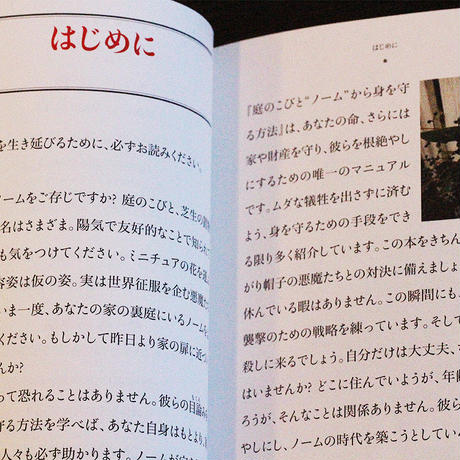 はじめに
を生き延びるために、必ずお読みください。
ノームをご存じですか? 庭のこびと、芝生の
名はさまざま。陽気で友好的なことで知られ
も気をつけてください。ミニチュアの花を
姿は仮の姿。実は世界征服を企む悪魔
いま一度、あなたの家の裏庭にいるノーム
ください。もしかして昨日より家の扉に近づ
んか?
って恐れることはありません。彼らの目論み
守る方法を学べば、あなた自身はもとより、
人々も必ず助かります。
はじめに
『庭のこびと“ノーム”から身を守
る方法』は、あなたの命、さらには
家や財産を守り、彼らを根絶やし
にするための唯一のマニュアル
です。ムダな犠牲を出さずに済む
よう、身を守るための手段をでき
る限り多く紹介しています。この本をきちん
がり帽子の悪魔たちとの対決に備えましょ
休んでいる暇はありません。この瞬間にも、
襲撃のための戦略を練っています。そして
殺しに来るでしょう。自分だけは大丈夫、
はいませんか? どこに住んでいようが、年齢
ろうが、そんなことは関係ありません。彼ら
やしにし、ノームの時代を築こうとしている